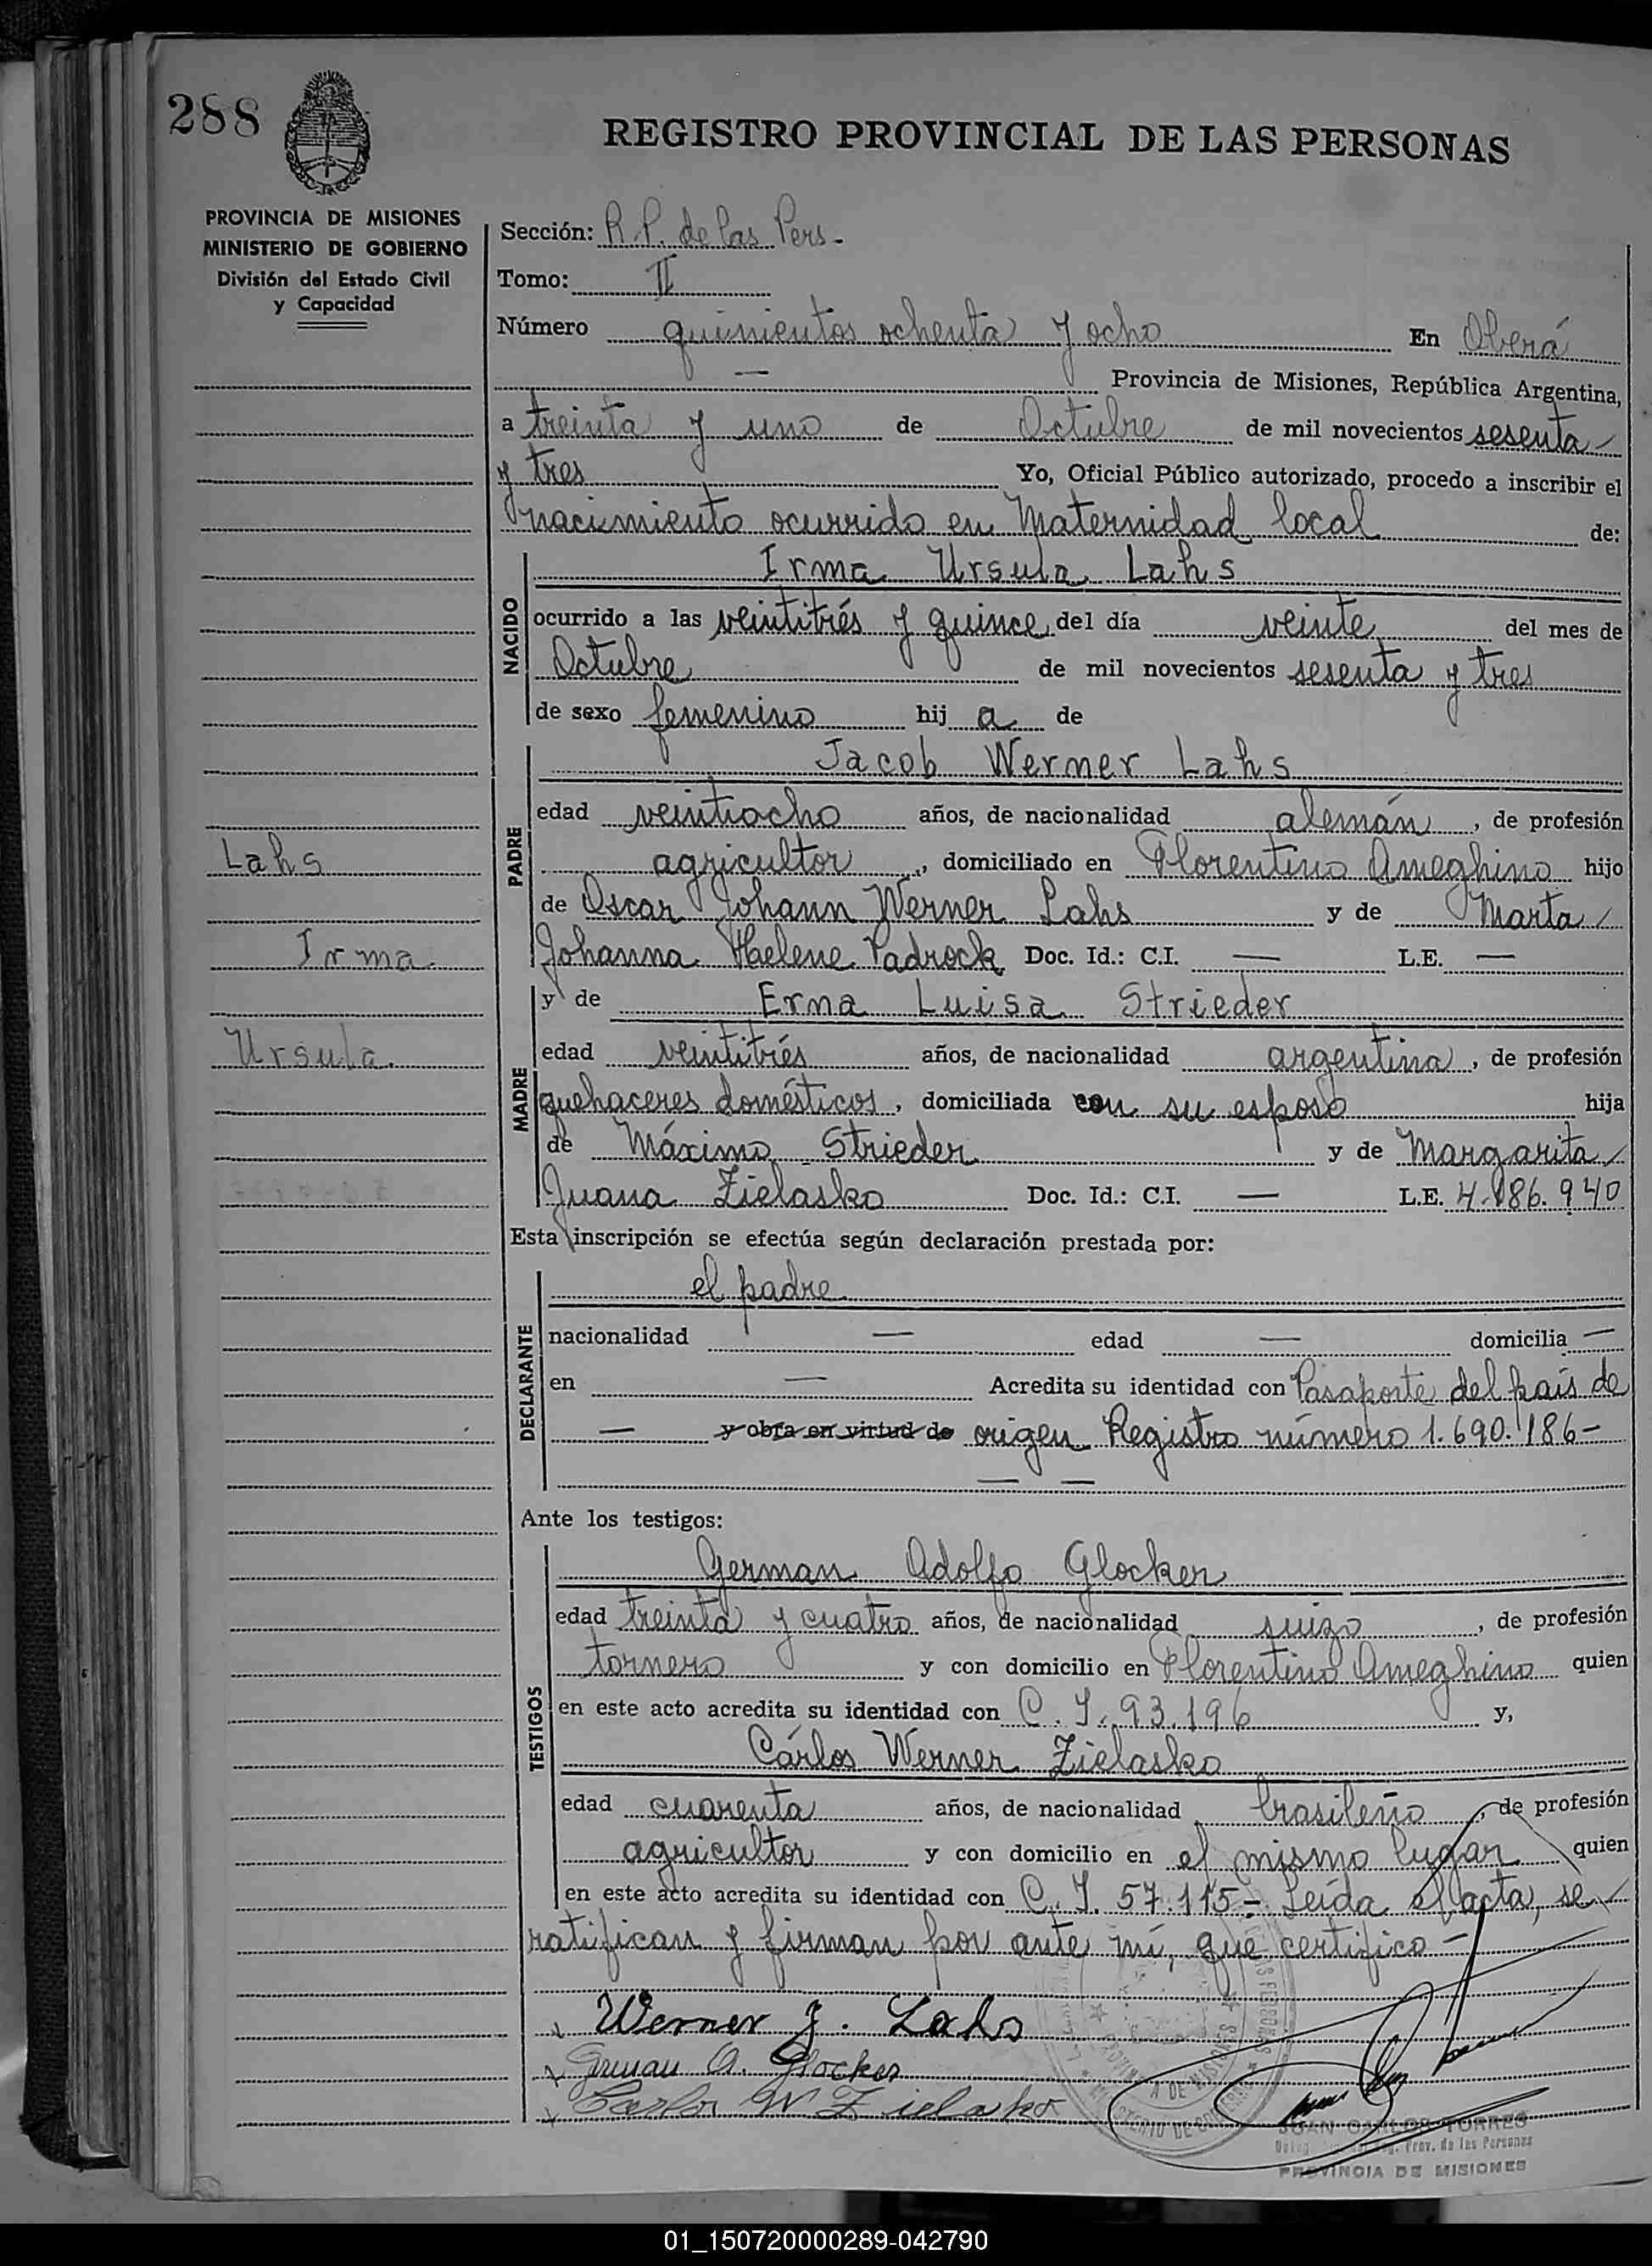 288
REGISTRO PROVINCIAL DE LAS PERSONAS
PROVINCIA DE MISIONES
MINISTERIO DE GOBIERNO
División del Estado Civil
y Capacidad
Sección: R.P. de las Pers.
Tomo: II
Número quinientos ochenta y ocho En Oberá
— Provincia de Misiones, República Argentina,
a treinta y uno de Octubre de mil novecientos sesenta
y tres Yo, Oficial Público autorizado, procedo a inscribir el
nacimiento ocurrido en Maternidad local de:
NACIDO
Irma Ursula Lahs
ocurrido a las veintitrés y quince del día veinte del mes de
Octubre de mil novecientos sesenta y tres
de sexo femenino hij a de
PADRE
Jacob Werner Lahs
edad veintiocho años, de nacionalidad alemán, de profesión
agricultor, domiciliado en Florentino Ameghino hijo
de Oscar Johann Werner Lahs y de Marta
Johanna Helene Padrock Doc. Id.: C.I. — L.E. —
Lahs
Irma
Ursula.
MADRE
y de Erna Luisa Strieder
edad veintitrés años, de nacionalidad argentina, de profesión
quehaceres domésticos, domiciliada con su esposo hija
de Máximo Strieder y de Margarita
Juana Zielasko Doc. Id.: C.I. — L.E. 4.186.940
Esta inscripción se efectúa según declaración prestada por:
DECLARANTE
el padre
nacionalidad — edad — domicilia —
en — Acredita su identidad con Pasaporte del país de
— y obra en virtud de origen Registro número 1.690.186-
— —
Ante los testigos:
TESTIGOS
German Adolfo Glocker
edad treinta y cuatro años, de nacionalidad suizo, de profesión
tornero y con domicilio en Florentino Ameghino quien
en este acto acredita su identidad con C.I. 93.196 y,
Cárlos Werner Zielasko
edad cuarenta años, de nacionalidad brasileño, de profesión
agricultor y con domicilio en el mismo lugar quien
en este acto acredita su identidad con C.I. 57.115- Leída el acta, se
ratifican y firman por ante mí, que certifico-
Werner J. Lahs
German A. Glocker
Carlos W Zielasko
JUAN CARLOS TORRES
Prov. de las Personas
PROVINCIA DE MISIONES
01_150720000289-042790